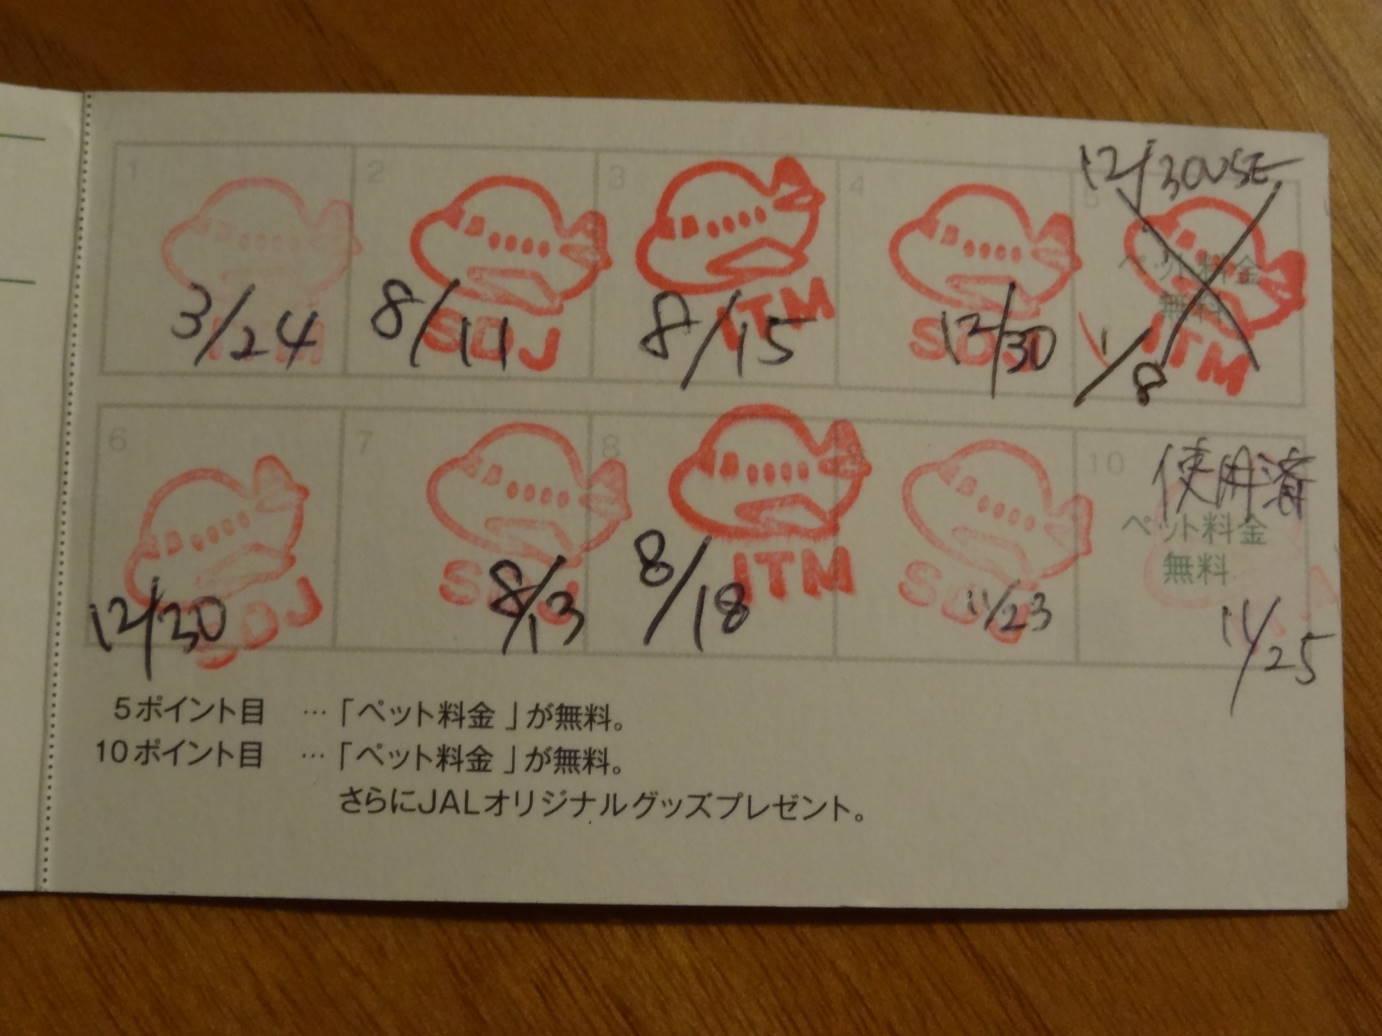 1 2 3 4 5
12/30USE
ペット料金
無料
ITM SDJ ITM SDJ ITM
3/24 8/11 8/15 12/30 1/8
6 7 8 9 10
使用済
ペット料金
無料
SDJ SDJ ITM SDJ
12/30 8/13 8/18 11/23 11/25
5ポイント目 …「ペット料金」が無料。
10ポイント目 …「ペット料金」が無料。
さらにJALオリジナルグッズプレゼント。